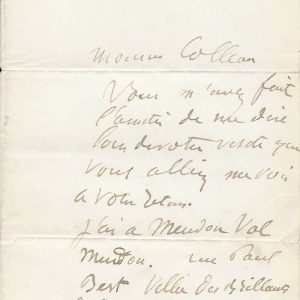 Monsieur
Vous m'avez fait
l'amitié de me dire
lors de votre visite que
vous alliez me voir
a votre retour.
j'ai a Meudon Val
Meudon. rue Paul
Bert Villa des Brillants